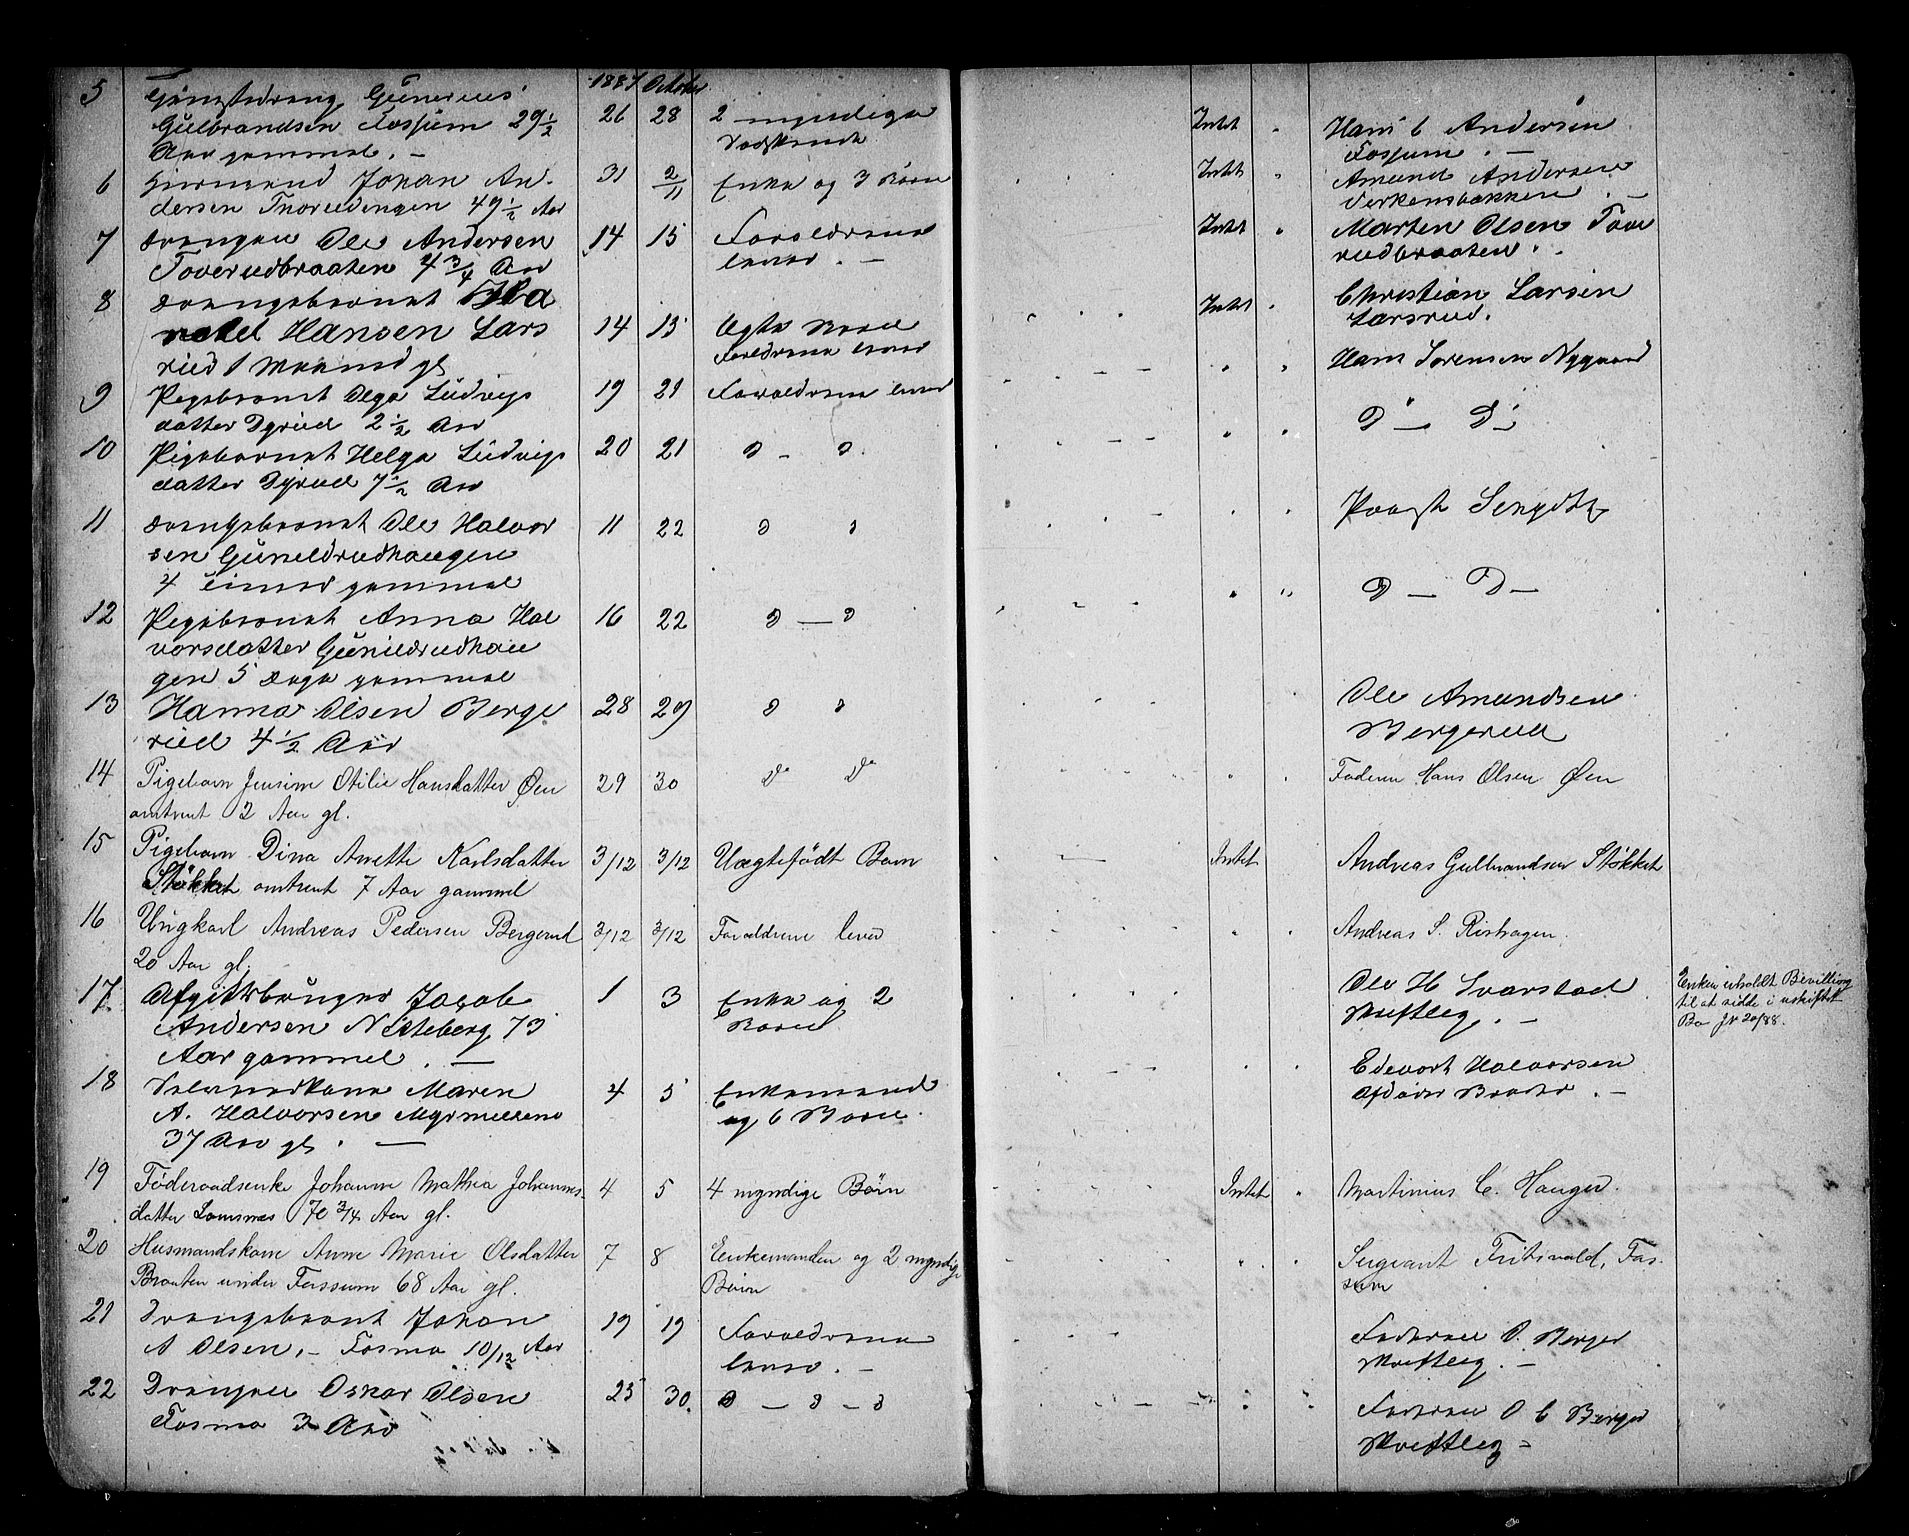 1887 October
5 Gunerius
Gulbrandsen Fossum 29 1/2 26 28 2 myndige Intet " Hans C Andersen
Aar gammel. — Fossum. —
6 Johan An- 31 2/11 Enke og 3 Børn Intet " Amund Andersen
dersen 49 1/2 Aar Verkensbakken. —
7 Drengen Ole Andersen 14 15 Forældrene Intet " Marten Olsen Tove
Toverudbraaten 4 3/4 Aar lever. — rudbraaten.
8 Drengebarnet Intet " Christian Larsen
Hansen Lars 14 15 Ægte Barn Larsrud.
rud 1 Maaned gl Forældrene lever
9 Pigebarnet Olga Ludvigs 19 21 Forældrene lever " " Hans Sørensen Nygaard
datter Dyrud 2 1/2 Aar
10 Pigebarnet Helga Ludvigs 20 21 D — D " " D — D
datter Dyrud 7 1/2 Aar
11 Drengebarnet Ole Halvor 11 22 D D " "
sen Guneldrudhaugen
4 timer gammel
12 Pigebarnet Anna Hal 16 22 D — D " " D — D —
vorsdatter Gunildrudhau
gen 5 Dage gammel
13 Hanna Olsen Berge 28 29 D D Ole Amundsen
rud 4 1/2 Aar Bergerud
14 Pigebarn Jensine Otilie Hansdatter Øen 29 30 Do Do " " Faderen Hans Olsen Øen
omtrent 2 Aar gl.
15 Pigebarn Dina Anette Karlsdatter 3/12 3/12 Uægtefødt Barn — Intet " Andreas Gulbrandsen Støkket
Støkket omtrent 7 Aar gammel
16 Ungkarl Andreas Pedersen Bergerud 3/12 3/12 Forældrene lever " " Andreas S. Rishagen.
20 Aar gl.
17 Afgiftsbruger Jacob 1 3 Enke og 2 Ole H Svarstad Enken erholdt Bevilling
Andersen Nitteberg 73 Børn Skriftleg. — til at sidde i uskiftet
Aar gammel. — Bo JN 20/88.
18 Maren 4 5 Enkemand " " Edevart Halvorsen
A. Halvorsen og 6 Børn. Afdødes Broder. —
37 Aar gl. —
19 Føderaadsenke Johanne Mathea Johannes 4 5 4 myndige Børn Intet " Martinius C. Hauger.
datter Lomsnes 70 3/4 Aar gl.
20 Husmandskone Anne Marie Olsdatter 7 8 Enkemanden og 2 myndige " " Sergeant Fritsvald, Fos-
Braaten under Fossum 68 Aar gl. Børn sum
21 Drengebarnet Johan 19 19 Forældrene Faderen O. Berger
A Olsen. — Fosmo 10/12 Aar lever. — Skriftleg. —
22 Drengen Oskar Olsen 25 30. D — D — D " " Faderen O C Berger
Fosmo 3 Aar Skriftleg —